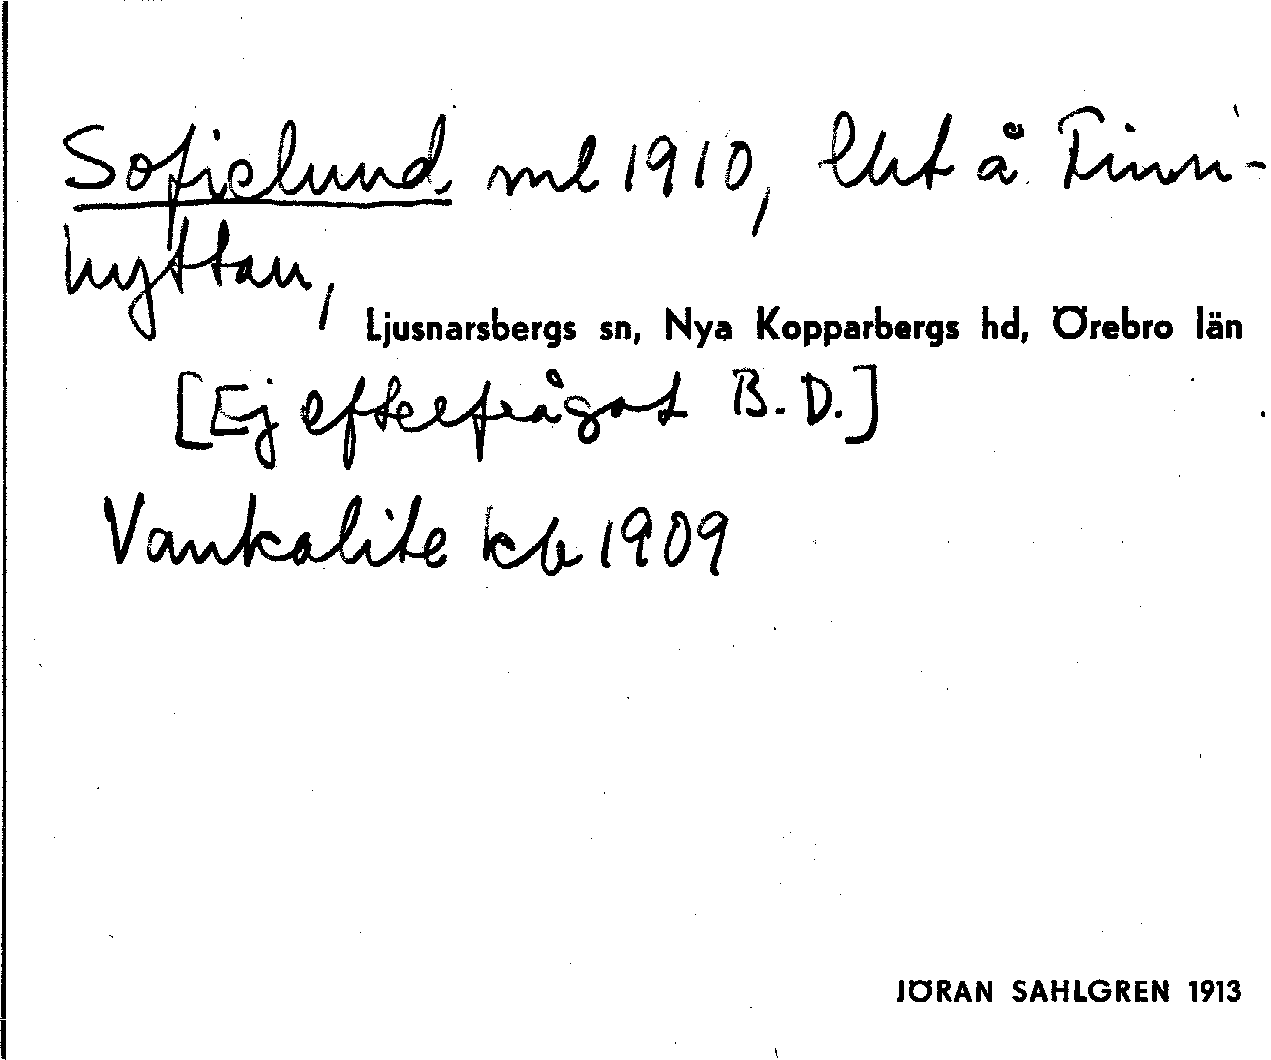 Sofielund, ml 1910, lht å Finn-
hyttan,
Ljusnarsbergs sn, Nya Kopparbergs hd, Örebro län
[Ej efterfrågat B. D.]
Vankalite kb 1909
JÖRAN SAHLGREN 1913